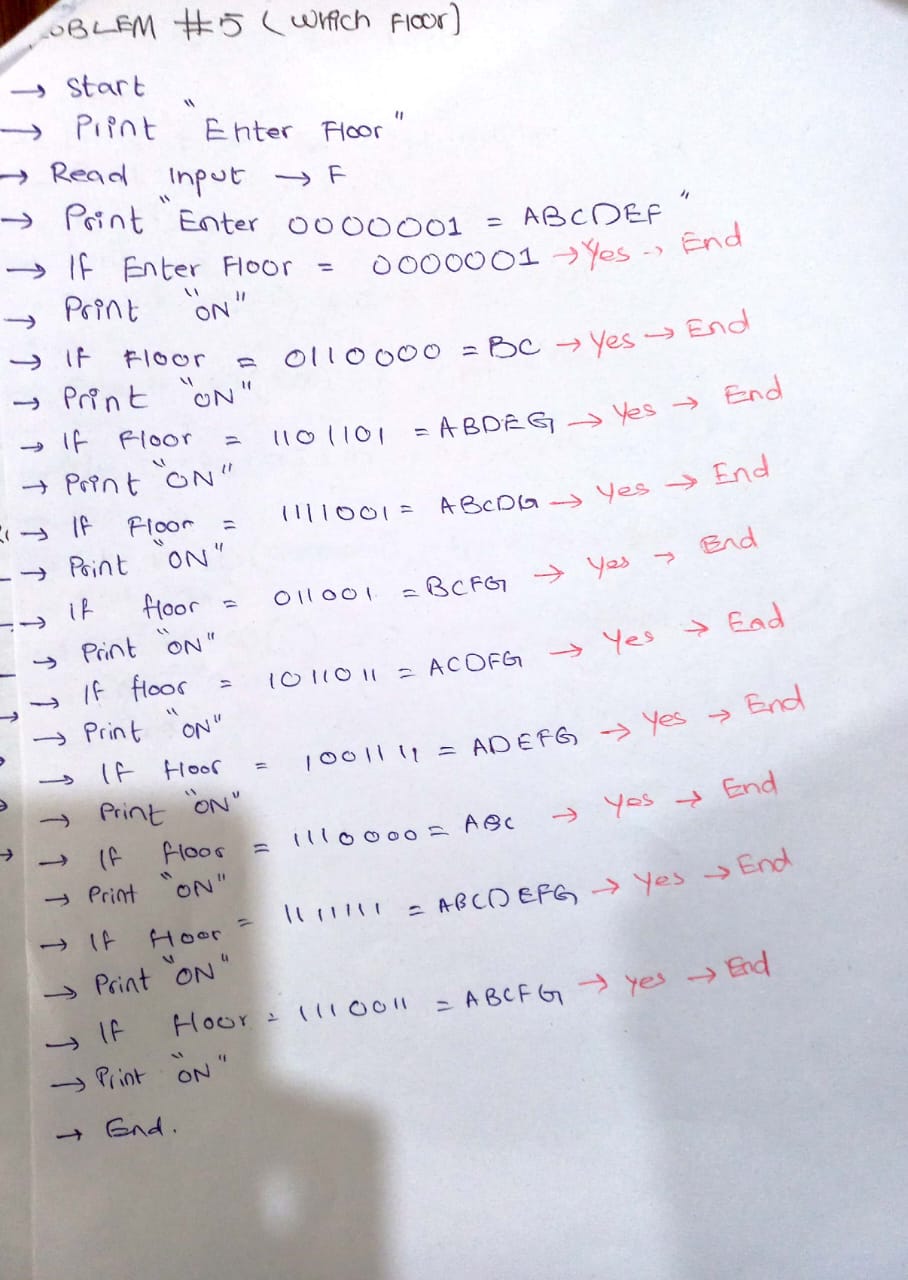 OBLEM #5 (Which Floor)
→ Start
→ Print "Enter Floor"
→ Read Input → F
→ Print "Enter 0000001 = ABCDEF"
→ If Enter Floor = 0000001 → Yes → End
→ Print "ON"
→ If Floor = 0110000 = BC → Yes → End
→ Print "ON"
→ If Floor = 1101101 = ABDEG → Yes → End
→ Print "ON"
→ If Floor = 1111001 = ABCDG → Yes → End
→ Print "ON"
→ if floor = 011001 = BCFG → Yes → End
→ Print "ON"
→ If floor = 1011011 = ACDFG → Yes → End
→ Print "ON"
→ If floor = 1001111 = ADEFG → Yes → End
→ Print "ON"
→ If floor = 1110000 = ABC → Yes → End
→ Print "ON"
→ If floor = 1111111 = ABCDEFG → Yes → End
→ Print "ON"
→ If floor = 1110011 = ABCFG → yes → End
→ Print "ON"
→ End.